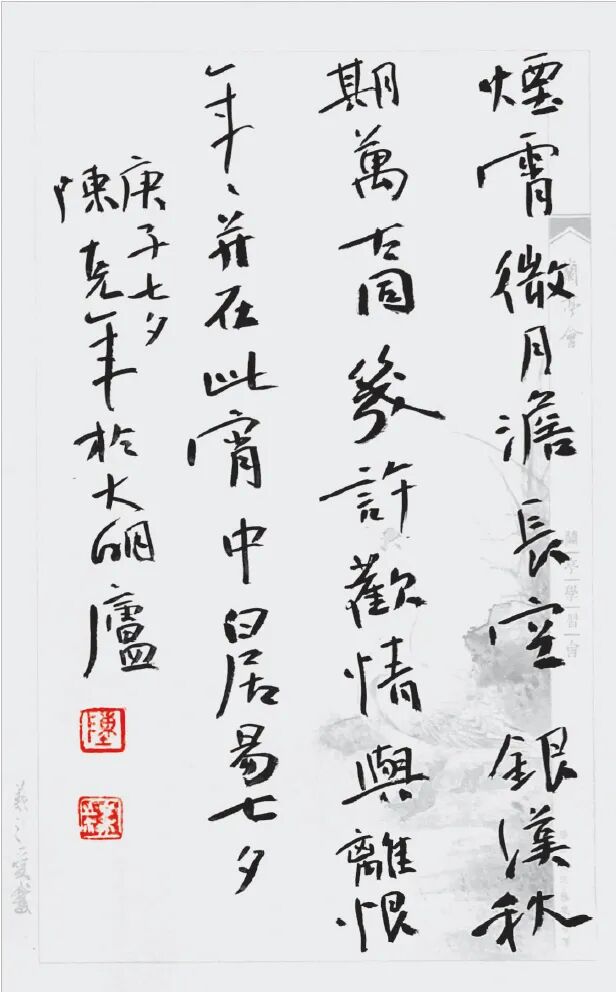 煙霄微月澹長空銀漢秋
期萬古同幾許歡情與離恨
年〻并在此宵中白居易七夕
庚子七夕
陳克年於大明廬
蘭亭會
蘭亭學習會